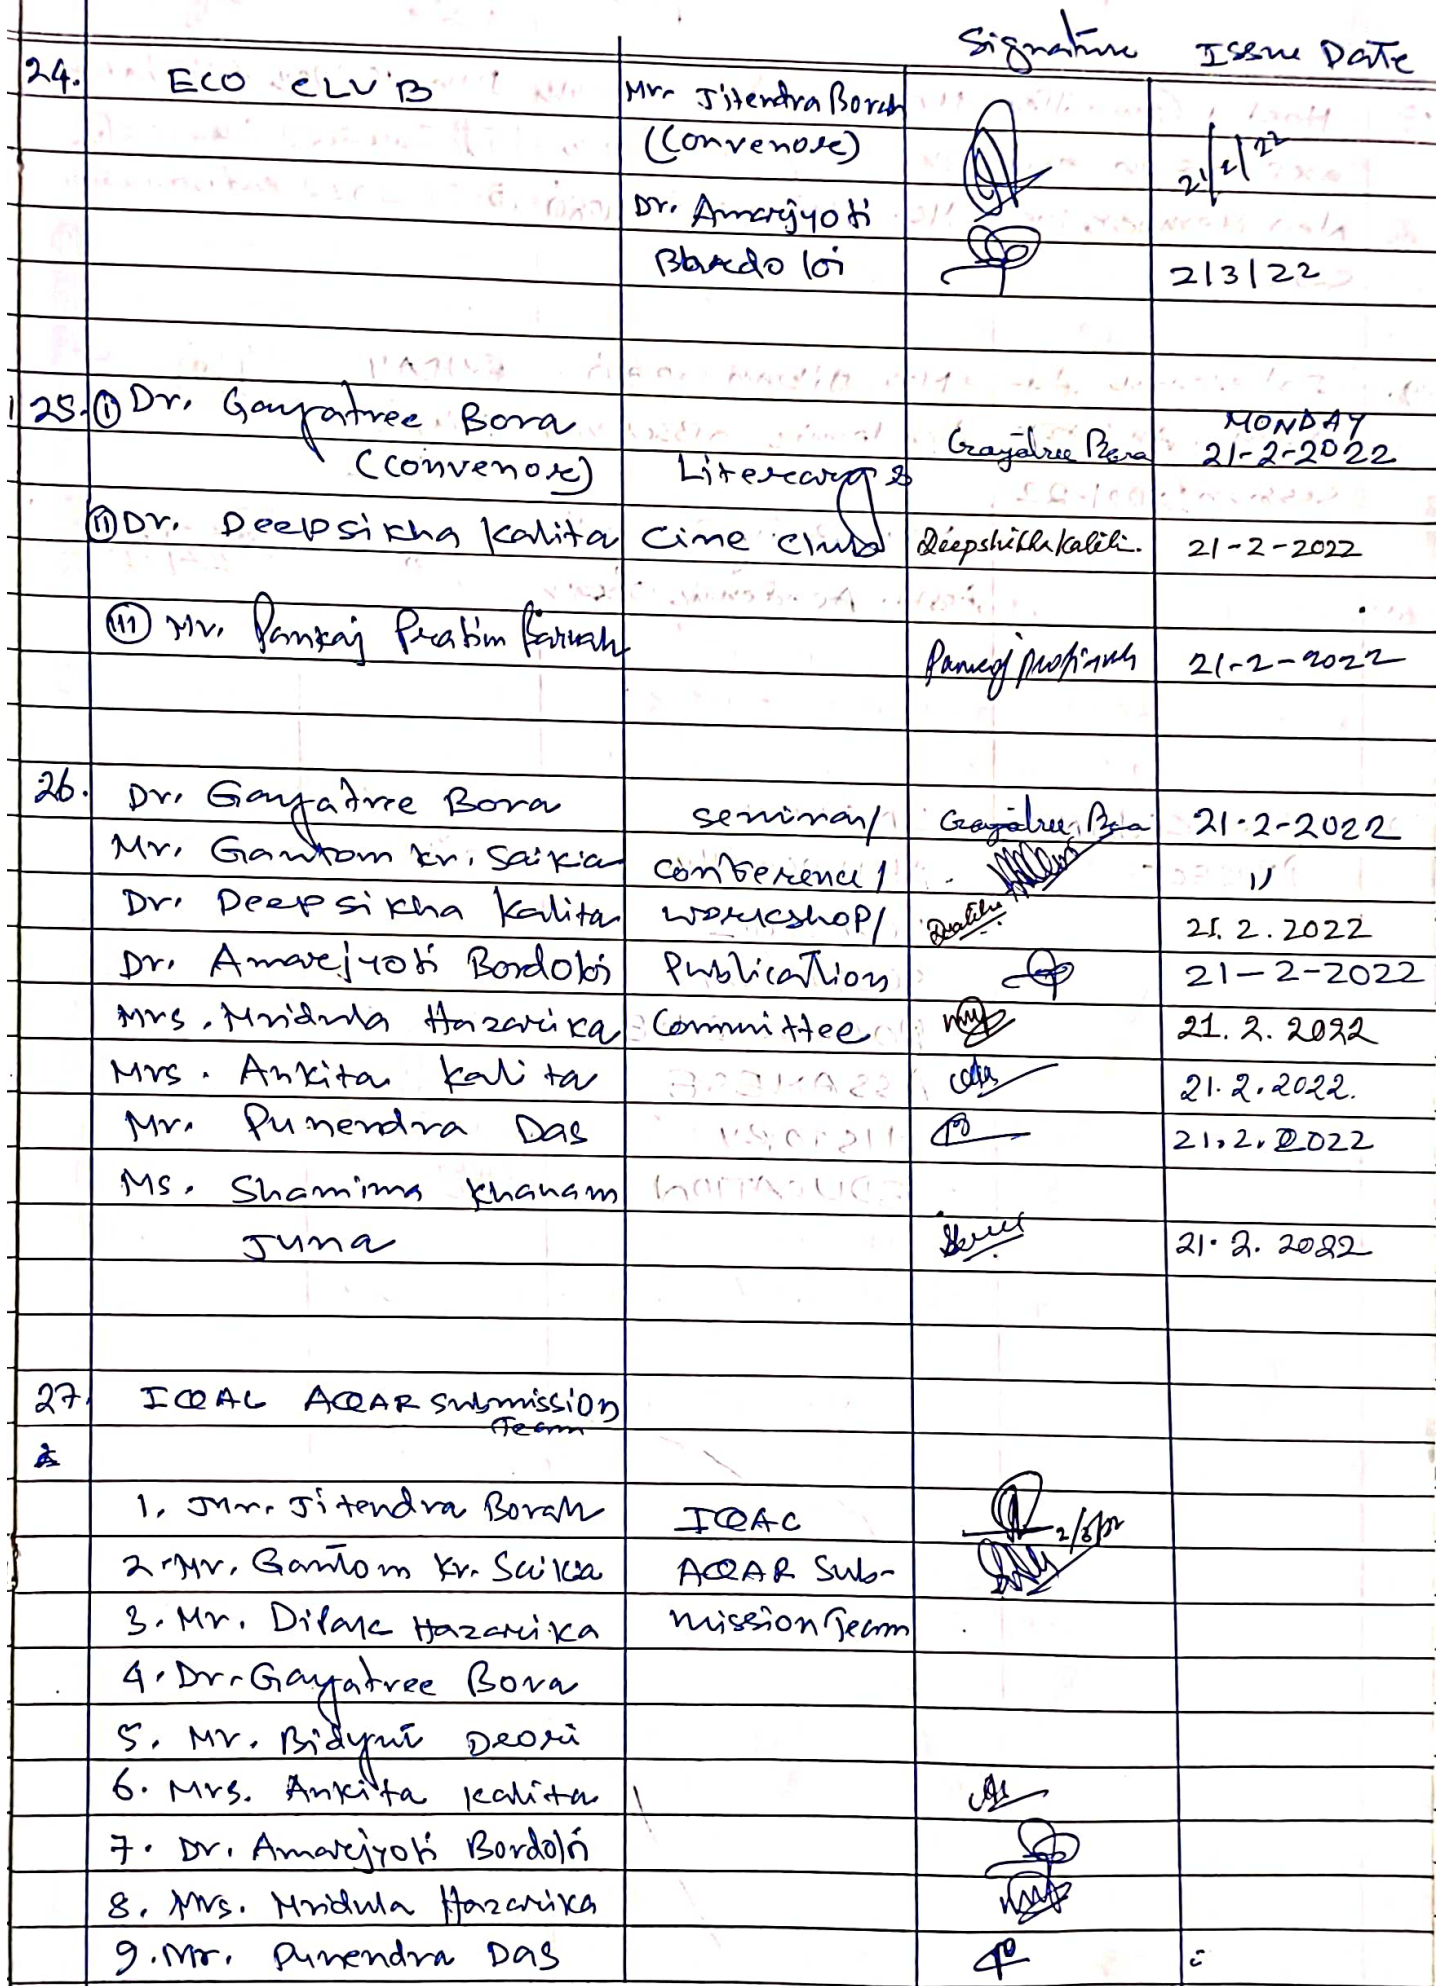 Signature Issue Date
24. ECO CLUB Mr. Jitendra Borah
(Convenore) 21/2/22
Dr. Amarjyoti
Bordoloi 2/3/22
25. (i) Dr. Gayatree Bora MONDAY
(Convenore) Literary & Gayatree Bora 21-2-2022
(ii) Dr. Deepsikha Kalita Cine Club Deepshikha Kalita. 21-2-2022
(iii) Mr. Pankaj Pratim Baruah
21-2-2022
26. Dr. Gayatree Bora Seminar/ Gayatree Bora 21-2-2022
Mr. Gautom Kr. Saikia Conference/ "
Dr. Deepsikha Kalita Workshop/ 21.2.2022
Dr. Amarejyoti Bordoloi Publication 21-2-2022
Mrs. Mridula Hazarika Committee 21.2.2022
Mrs. Ankita Kalita 21.2.2022.
Mr. Punendra Das 21.2.2022
Ms. Shamima Khanam
Juna 21.2.2022
27. IQAC AQAR Submission
Team
1. Mr. Jitendra Borah IQAC 2/3/22
2. Mr. Gautom Kr. Saikia AQAR Sub-
3. Mr. Dipak Hazarika mission Team
4. Dr. Gayatree Bora
5. Mr. Bidyut Deori
6. Mrs. Ankita Kalita
7. Dr. Amarejyoti Bordoloi
8. Mrs. Mridula Hazarika
9. Mr. Punendra Das